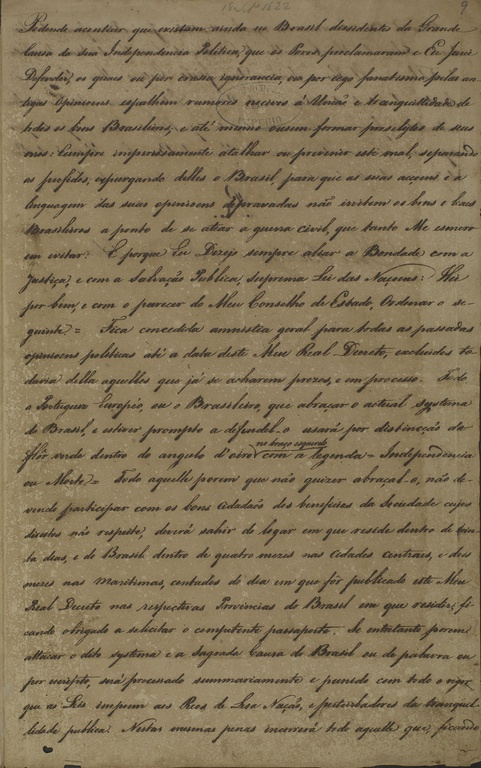 Podendo acontecer que existam ainda no Brasil dissidentes da Grande
Causa da sua Independencia Politica, que os Povos proclamaram e Eu Jurei
Defender, os quaes ou por crassa ignorancia, ou por cego fanatismo pelas an-
tigas opinioens espalhem rumores nocivos á União e tranquillidade de
todos os bons Brasileiros, e até mesmo ousem formar proselytos de seus
erros: Cumpre imperiosamente atalhar ou prevenir este mal, separando
os perfidos, expurgando delles o Brasil, para que as suas acçoens e a
linguagem das suas opinioens depravadas não irritem os bons e leaes
Brasileiros a ponto de se atear a guerra civil, que tanto Me esmero
em evitar: E porque Eu Dezejo sempre aliar a Bondade com a
Justiça, e com a Salvação Publica, Suprema Lei das Naçoens: Hei
por bem, e com o parecer do Meu Conselho de Estado, Ordenar o se-
guinte = Fica concedida amnistia geral para todas as passadas
opinioens politicas até a data deste Meu Real Decreto, excluidos to-
davia della aquelles que já se acharem prezos, e em processo. Todo
o Portuguez Europêo, ou o Brasileiro, que abraçar o actual systema
do Brasil, e estiver prompto a defendel-o usará por distincção da
flôr verde dentro do angulo d'oiro no braço esquerdo com a legenda = Independencia
ou Morte = Todo aquelle porem que não quizer abraçal-o, não de-
vendo participar com os bons cidadãos dos beneficios da Sociedade cujos
direitos não respeita, deverá sahir do logar em que reside dentro de trin-
ta dias, e do Brasil dentro de quatro mezes nas cidades centraes, e dois
mezes nas maritimas, contados do dia em que fôr publicado este Meu
Real Decreto nas respectivas Provincias do Brasil em que residir, fi-
cando obrigado a solicitar o competente passaporte. Se entretanto porem
attacar o dito systema e a Sagrada Causa do Brasil ou de palavra ou
por escripto, será processado summariamente e punido com todo o rigor
que as Leis impoem aos Reos de Lesa Nação, e perturbadores da tranquil-
lidade publica. Nestas mesmas penas incorrerá todo aquelle que, ficando